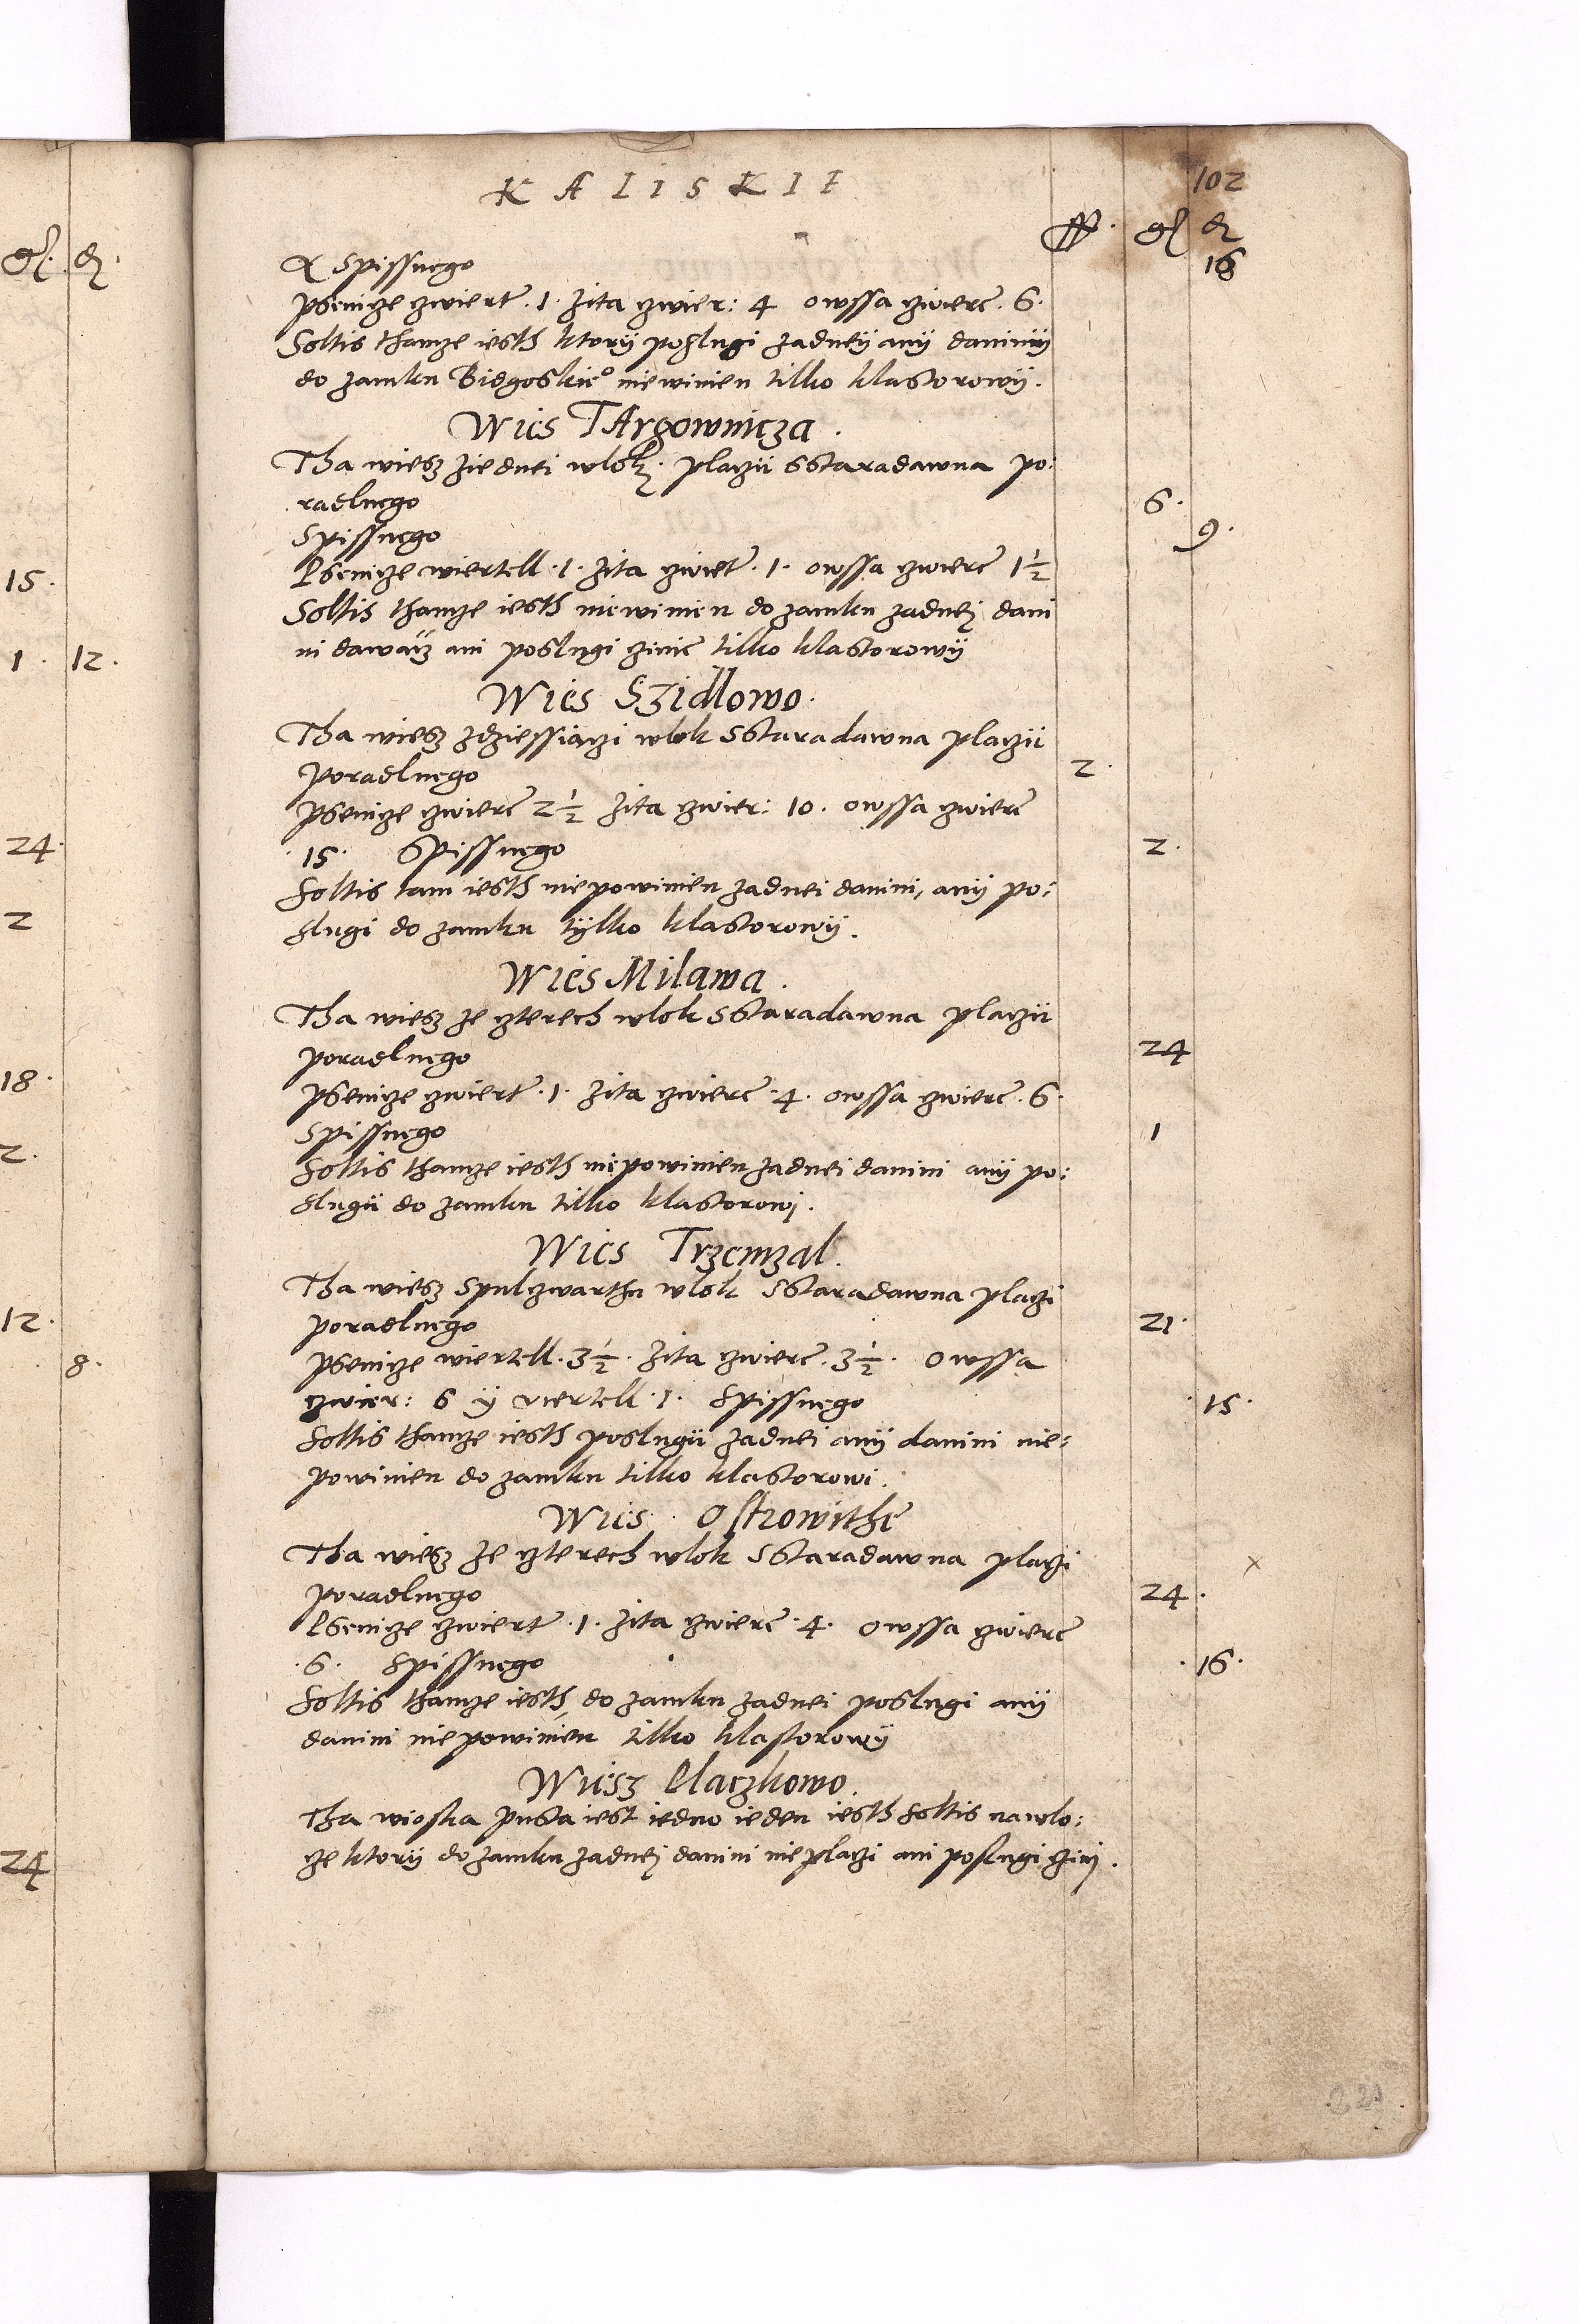 KALISKIE
102
ff. gſ dz
Spissnego 18
Psenicze czwiert. 1. Zita czwier: 4 owssa czwierc. 6.
Soltis thamze iesth ktorÿ poslugi zadneÿ anÿ daninÿ
do zamku Bidgoskie° niewinien tilko klastorowÿ.
Wies TArgownicza.
Tha wiesz ziednei wlokj placzii sstaradawna po:
radlnego 6.
Spissnego 9.
Psenicze wiertell .1. Zita czwiet .1. owssa czwierc 1½
Soltis thamze iesth niewinien do zamku zadnej dani
ni dawacz ani poslugi czinic tilko klastorowÿ
Wies SZidlowo.
Tha wiesz zdziessiączi wlok sstaradawna placzii
Poradlnego 2.
Psenicze czwierc 2½ Zita czwier: 10. owssa czwierc
.15. Spissnego 2.
Soltis tam iesth niepowinien zadnei danini, anÿ po:
slugi do zamku tÿlko klastorowÿ.
Wies Milawa.
Tha wiesz ze czterech wlok sstaradawna placzii
poradlnego 24
Psenicze czwiert .1. Zita czwierc .4. owssa czwierc .6.
Spissnego 1
Soltis thamze iesth niepowinien zadnei danini anÿ po:
slugii do zamku tilko klastorowj.
Wies Trzemzal.
Tha wiesz spulczwarthu wlok sstaradawna placzi
poradlnego 21.
Psenicze wiertell .3½. Zita czwierc .3½. owssa
czwier: 6 ÿ viertell .1. Spissnego .15.
Soltis thamze iesth poslugii zadnei anÿ danini nie:
powinien do zamku tilko klastorowi.
Wies Ostrowithe
Tha wiesz ze czterech wlok sstaradawna placzi x
poradlnego 24.
Psenicze czwiert .1. Zita czwierc .4. owssa czwierc
.6. Spissnego .16.
Soltis thamze iesth do zamku zadnei poslugi anÿ
danini niepowinien tilko klastorowÿ
Wiesz Claczkowo.
Tha wioska pusta iest iedno ieden iesth Soltis nawlo:
cze ktorÿ do zamku zadnej danini nieplaczi ani poslugi czinj.
gſ. dz.
15.
1. 12.
24.
2
18.
2.
12.
8.
24